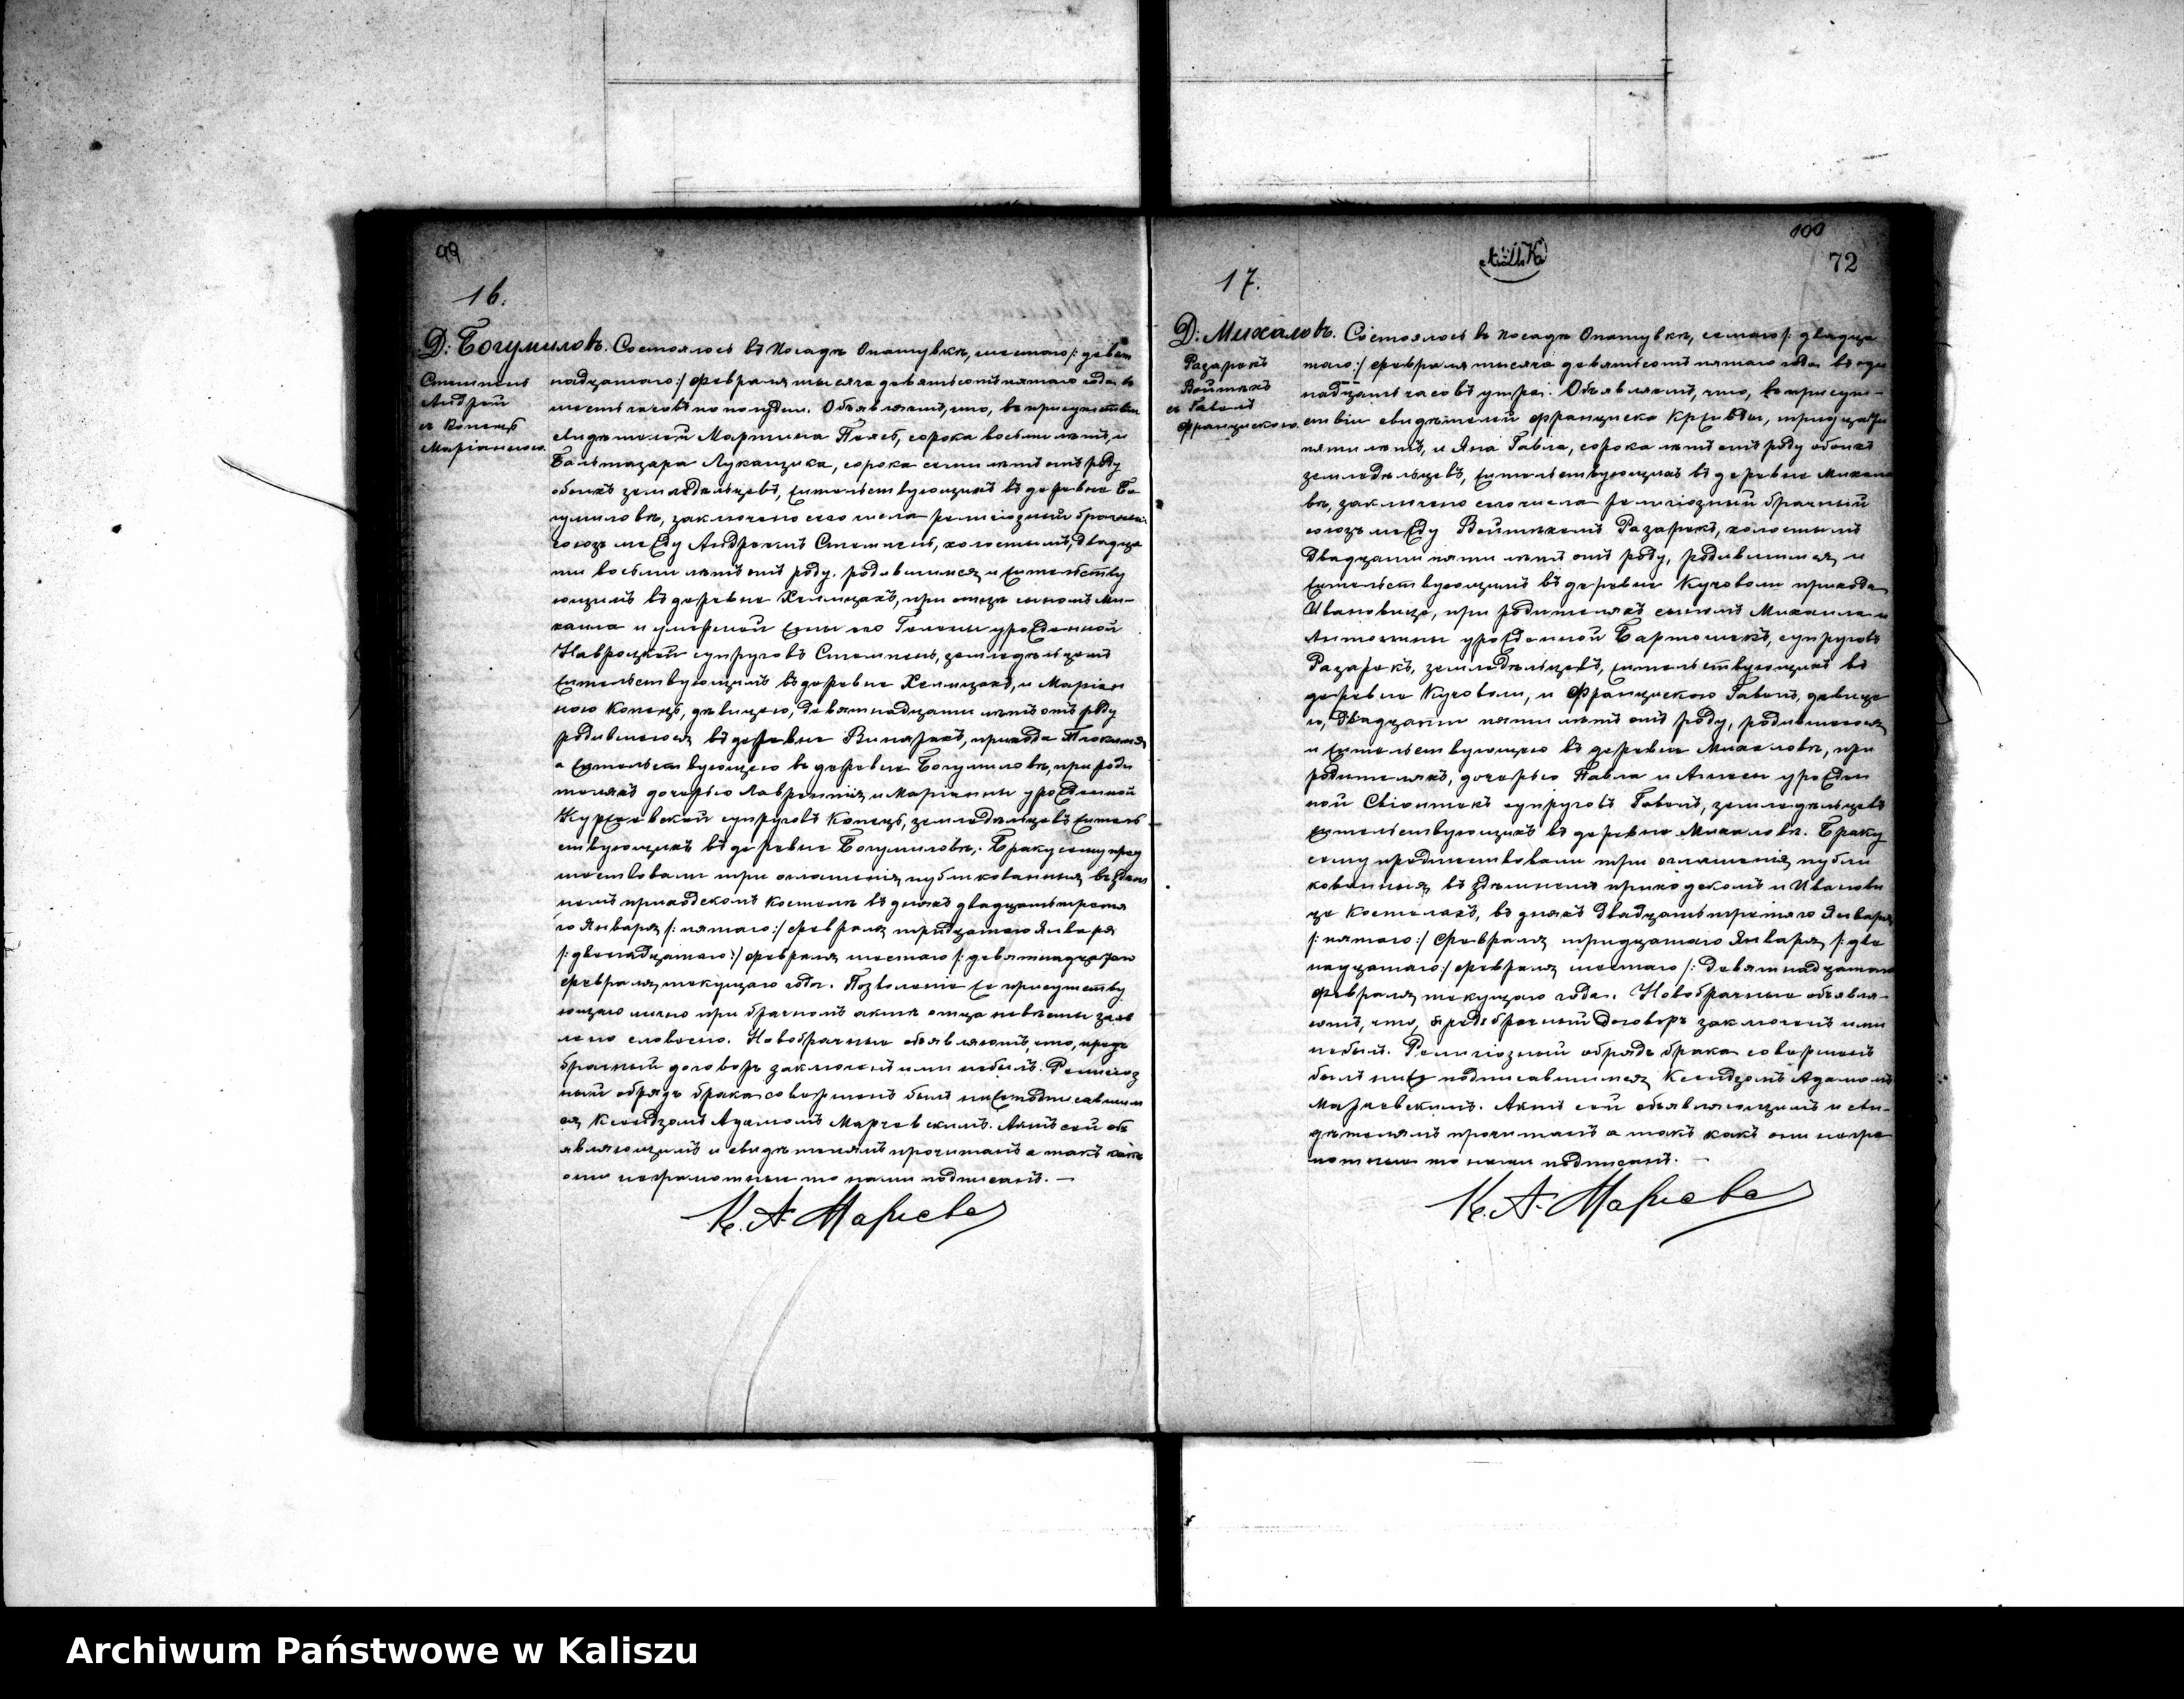 99
16.
Д: Богумиловъ.
Стемпень
Андрей
съ Конецъ
Маріанною.
Состоялось въ посадѣ Опатувкѣ, шестаго /: девят
надцатаго :/ февраля тысяча девятьсотъ пятаго года въ
шесть часовъ по полудни. Объявляемъ, что, въ присутствіи
свидѣтелей Мартина Полеб, сорока восьми лѣтъ, и
Бальтазара Луканзика, сорока семи лѣтъ отъ роду
обоихъ земледѣльцевъ, жительствующихъ въ деревне Бо
гумиловѣ, заключено сего числа религіозный брачный
союзъ между Андреемъ Стемпень, холостымъ, двадца
ти восьми лѣтъ отъ роду, родившимся и жительству
ющимъ въ деревне Хелмцахъ, при отцѣ сыномъ Ми-
хаила и умершей жены его Гелены урожденной
Навроцкой супруговъ Стемпень, земледѣльцемъ
жительствующимъ въ деревне Хелмцахъ, и Маріан
ною Конецъ, дѣвицею, девятнадцати лѣтъ отъ роду
родившеюся въ деревне Винярахъ, прихода
а жительствующею въ деревне Богумиловѣ, при роди
теляхъ дочерью Лаврентія и Маріанны урожденной
Куржавской супруговъ Конецъ, земледѣльцевъ житель
ствующихъ въ деревне Богумиловѣ. Браку сему пред
шествовали три оглашенія публикованныя въ здѣш
немъ приходскомъ костелѣ въ дняхъ двадцать третья
го Января /: пятаго :/ февраля тридцатаго Января
/: двенадцатаго :/ февраля шестаго /: девятнадцатаго
февраля текущаго года. Позволеніе же присутству
ющаго лично при брачномъ актѣ отца невѣсты заяв
лено словесно. Новобрачные объявляютъ, что, предъ
брачный договоръ заключенъ ими небылъ. Религіоз
ный обрядъ брака совершенъ былъ нижеподписавшим
ся Ксендзомъ Адамомъ Марчевскимъ. Актъ сей объ
являющимъ и свидѣтелямъ прочитанъ а такъ какъ
они неграмотные то нами подписанъ. —
К. А. Марчевс
100
72
17.
Д: Михаловъ.
Разарекъ
Войтехъ
съ Гавелъ
Францискою.
Состоялось въ посадѣ Опатувкѣ, седмаго /: двадца
таго :/ февраля тысяча девятьсотъ пятаго года въ оди
надцать часовъ утра. Объявляемъ, что, въ присут-
ствіи свидѣтелей Франциска Кржывды, тридцати
пяти лѣтъ, и Яна Гавла, сорока лѣтъ отъ роду обоихъ
земледѣльцевъ, жительствующихъ въ деревне Михало
вѣ, заключено сего числа религіозный брачный
союзъ между Войтехомъ Разарекъ, холостымъ
двадцати пяти лѣтъ отъ роду, родившимся и
жительствующимъ въ деревне Кучоволи прихода
Ивановице, при родителяхъ сыномъ Михаила и
Антонины урожденной Бартошекъ, супруговъ
Разарекъ, земледѣльцевъ, жительствующихъ въ
деревне Кучоволи, и Францискою Гавелъ, девице
ю, двадцати пяти лѣтъ отъ роду, родившеюся
и жительствующею въ деревне Михаловѣ, при
родителяхъ, дочерью Павла и Агнесы урожден
ной Свіонтекъ супруговъ Гавелъ, земледѣльцевъ
жительствующихъ въ деревне Михаловѣ. Браку
сему предшествовали три оглашенія публи
кованныя въ здѣшнемъ приходскомъ и Иванови
це Костелахъ, въ дняхъ двадцать третьяго Января
/: пятаго :/ февраля тридцатаго Января /: две
надцатаго :/ февраля шестаго /: девятнадцатаго
февраля текущаго года. Новобрачные объявля-
ютъ, что, предъ брачный договоръ заключенъ ими
небылъ. Религіозный обрядъ брака совершенъ
былъ ниже подписавшимся Ксендзомъ Адамомъ
Марчевскимъ. Актъ сей объявляющимъ и сви-
дѣтелямъ прочитанъ а такъ какъ они негра
мотные то нами подписанъ. —
К. А. Марчевс
Archiwum Państwowe w Kaliszu